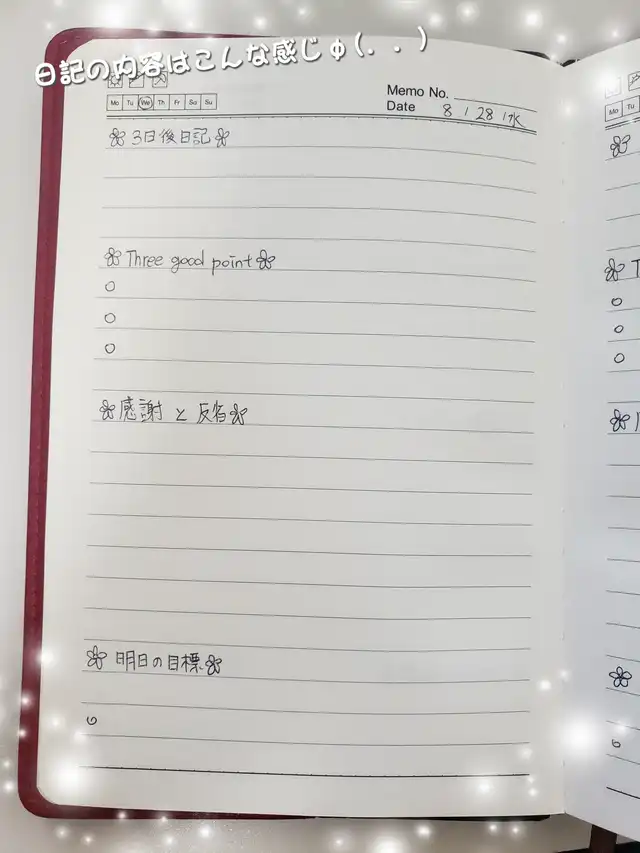 日記の内容はこんな感じφ(．．)
Memo No.
Mo Tu We Th Fr Sa Su
Date 8/28/水
3日後日記
Three good point
感謝と反省
明日の目標
Mo Tu
T